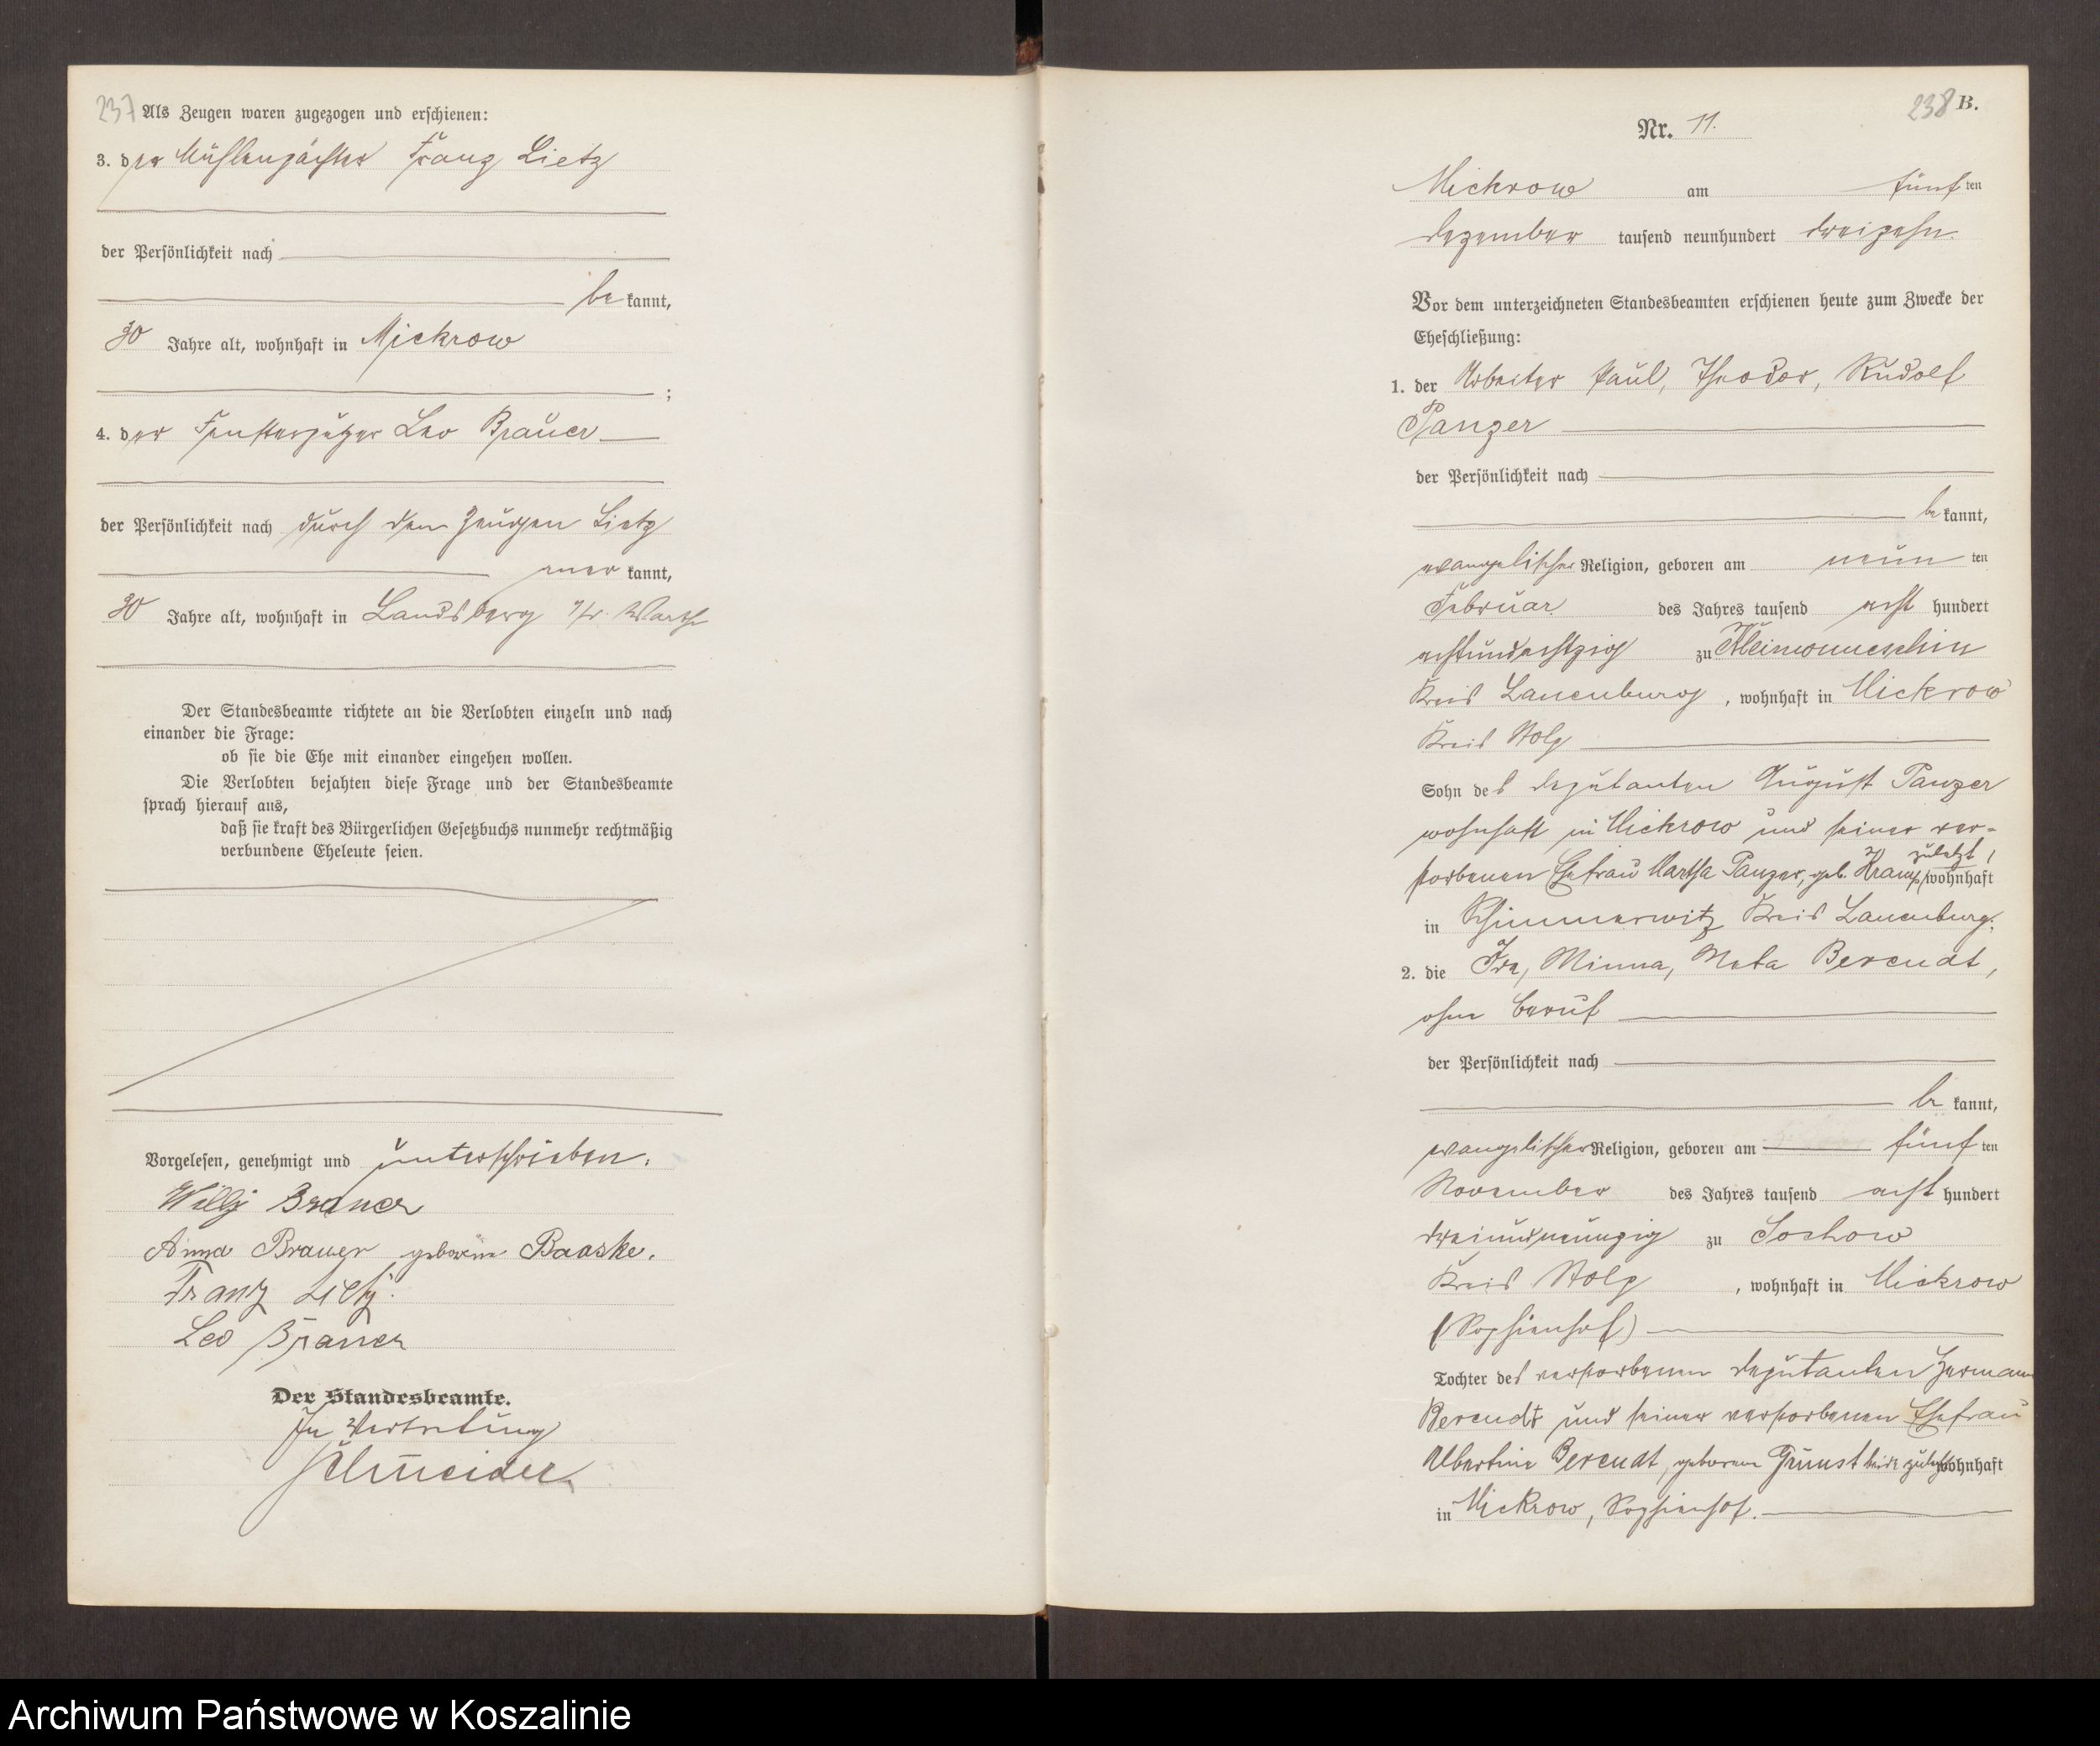 237 Als Zeugen waren zugezogen und erschienen:
3. der Mühlenpächter Franz Lietz
der Persönlichkeit nach
bekannt,
30 Jahre alt, wohnhaft in Mickrow
;
4. der Fensterputzer Leo Brauer
der Persönlichkeit nach durch den Zeugen Lietz
anerkannt,
30 Jahre alt, wohnhaft in Landsberg a/w. Warthe
Der Standesbeamte richtete an die Verlobten einzeln und nach
einander die Frage:
ob sie die Ehe mit einander eingehen wollen.
Die Verlobten bejahten diese Frage und der Standesbeamte
sprach hierauf aus,
daß sie kraft des Bürgerlichen Gesetzbuchs nunmehr rechtmäßig
verbundene Eheleute seien.
Vorgelesen, genehmigt und unterschrieben.
Willy Brauer
Anna Brauer geborene Baaske.
Franz Lietz.
Leo Brauer
Der Standesbeamte.
In Vertretung
Schneider
238 B.
Nr. 11.
Mickrow am fünften
Dezember tausend neunhundert dreizehn.
Vor dem unterzeichneten Standesbeamten erschienen heute zum Zwecke der
Eheschließung:
1. der Arbeiter Paul, Theodor, Rudolf
Panzer
der Persönlichkeit nach
bekannt,
evangelischer Religion, geboren am neunten
Februar des Jahres tausend achthundert
achtundachtzig zu
Kreis Lauenburg, wohnhaft in Mickrow
Kreis Stolp
Sohn des Deputanten August Panzer
wohnhaft in Mickrow und seiner ver-
storbenen Ehefrau Martha Panzer, geb. Kramp, zuletzt wohnhaft
in Schimmerwitz Kreis Lauenburg.
2. die Ida, Minna, Meta Berendt,
ohne Beruf
der Persönlichkeit nach
bekannt,
evangelischer Religion, geboren am fünften
November des Jahres tausend achthundert
dreiundneunzig zu Sochow
Kreis Stolp, wohnhaft in Mickrow
(Sophienhof)
Tochter des verstorbenen Deputanten Hermann
Berendt und seiner verstorbenen Ehefrau
Albertine Berendt, geborene Grünst beide zuletzt wohnhaft
in Mickrow, Sophienhof.
Archiwum Państwowe w Koszalinie